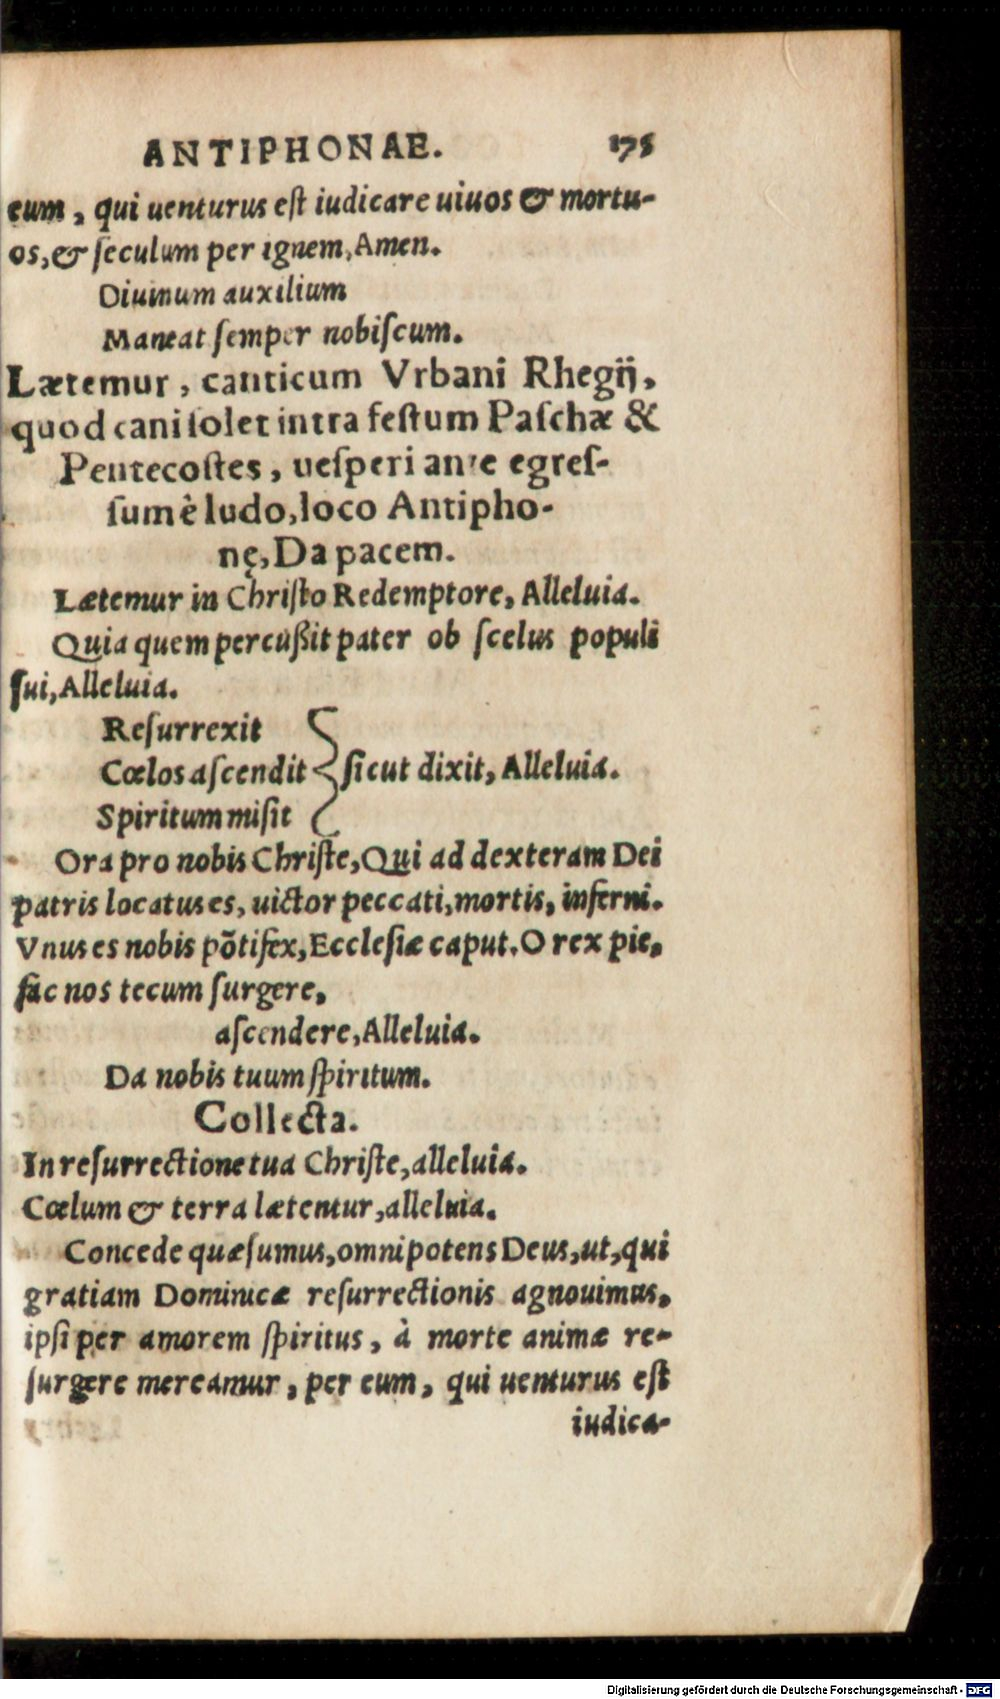 ANTIPHONAE. 175
eum, qui uenturus eſt iudicare uiuos & mortu-
os, & ſeculum per ignem, Amen.
Diuinum auxilium
Maneat ſemper nobiſcum.
Lætemur, canticum Vrbani Rhegij,
quod cani ſolet intra feſtum Paſchæ &
Pentecoſtes, ueſperi ante egreſ-
ſum è ludo, loco Antipho-
nę, Da pacem.
Lætemur in Chriſto Redemptore, Alleluia.
Quia quem percußit pater ob ſcelus populi
ſui, Alleluia.
Reſurrexit
Cœlos aſcendit } ſicut dixit, Alleluia.
Spiritum miſit
Ora pro nobis Chriſte, Qui ad dexteram Dei
patris locatus es, uictor peccati, mortis, inferni.
Vnus es nobis põtifex, Eccleſiæ caput. O rex pie,
fac nos tecum ſurgere,
aſcendere, Alleluia.
Da nobis tuum ſpiritum.
Collecta.
In reſurrectione tua Chriſte, alleluia.
Cœlum & terra lætentur, alleluia.
Concede quæſumus, omnipotens Deus, ut, qui
gratiam Dominicæ reſurrectionis agnouimus,
ipſi per amorem ſpiritus, à morte animæ re-
ſurgere mereamur, per eum, qui uenturus eſt
iudica-
Digitalisierung gefördert durch die Deutsche Forschungsgemeinschaft - DFG